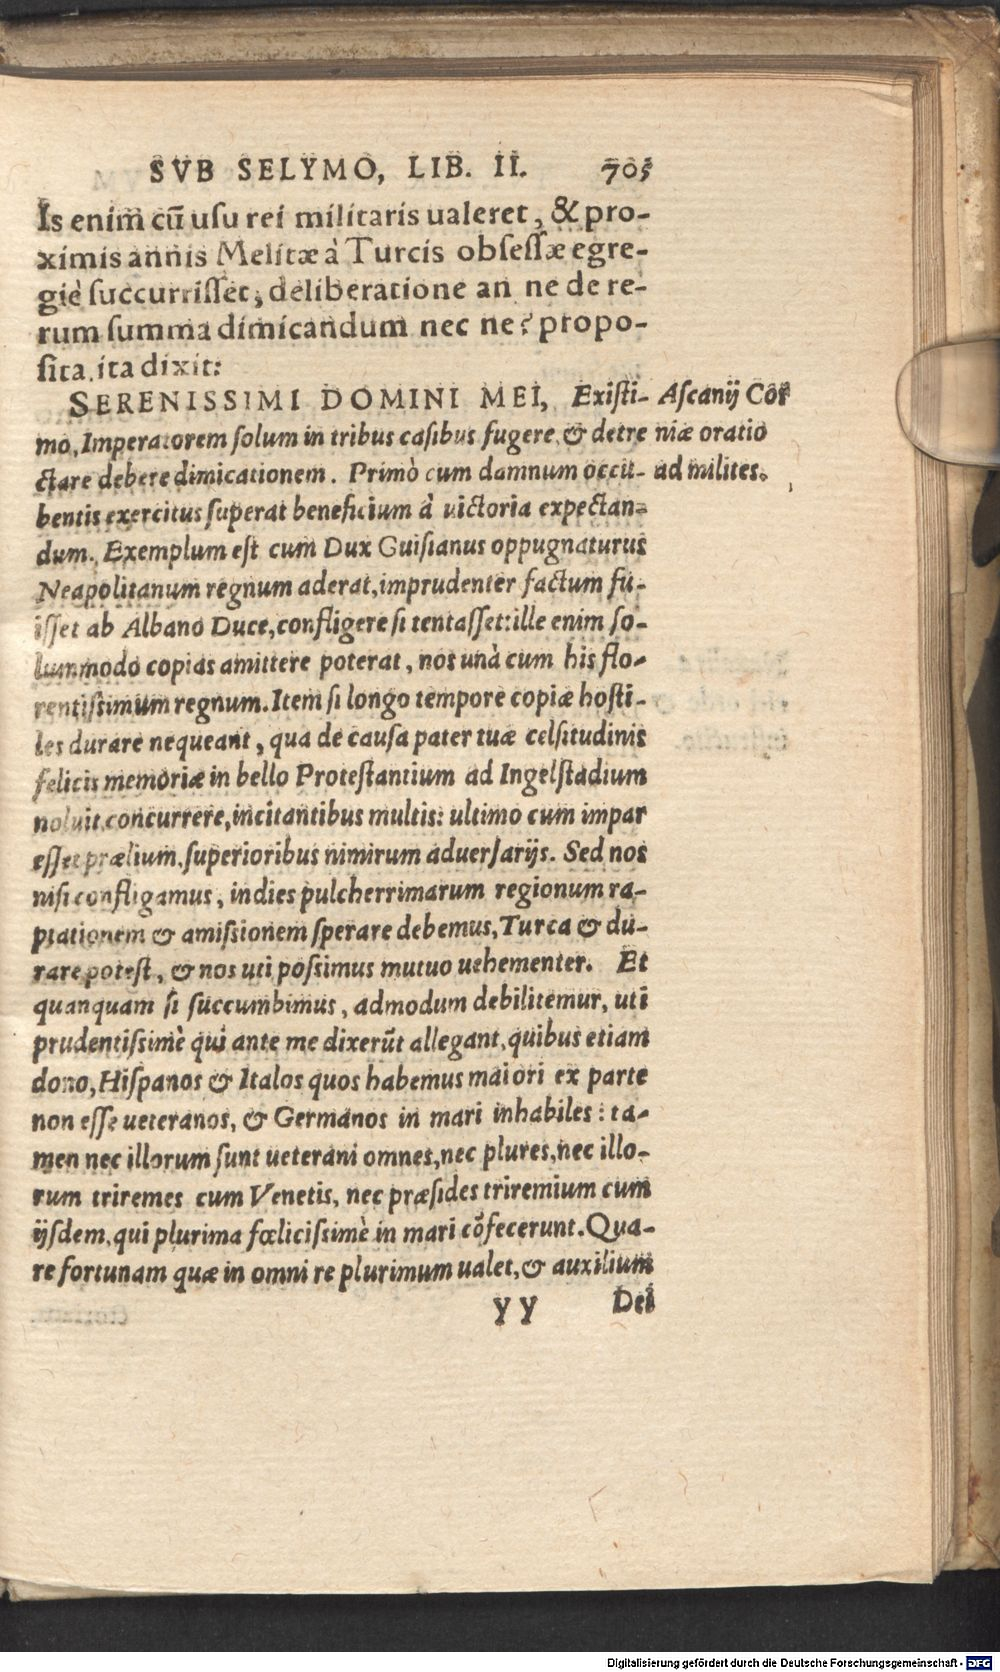 SVB SELYMO, LIB. II. 705
Is enim cū uſu rei militaris ualeret, & pro-
ximis annis Melitæ à Turcis obſeſſæ egre-
giè ſuccurriſſet, deliberatione an ne de re-
rum ſumma dimicandum nec ne? propo-
ſita, ita dixit:
SERENISSIMI DOMINI MEI, Exiſti-
mo, Imperatorem ſolum in tribus caſibus fugere, & detre
ctare debere dimicationem. Primò cum damnum occū-
bentis exercitus ſuperat beneficium à uictoria expectan-
dum. Exemplum eſt cum Dux Guiſianus oppugnaturus
Neapolitanum regnum aderat, imprudenter factum fu-
iſſet ab Albano Duce, confligere ſi tentaſſet: ille enim ſo-
lummodo copias amittere poterat, nos unà cum his flo-
rentiſsimum regnum. Item ſi longo tempore copiæ hoſti-
les durare nequeant, qua de cauſa pater tuæ celſitudinis
felicis memoriæ in bello Proteſtantium ad Ingelſtadium
noluit concurrere, incitantibus multis: ultimo cum impar
eſſet prælium, ſuperioribus nimirum aduerſarijs. Sed nos
niſi confligamus, indies pulcherrimarum regionum ra-
ptationem & amiſsionem ſperare debemus, Turca & du-
rare poteſt, & nos uti poſsimus mutuo uehementer. Et
quanquam ſi ſuccumbimus, admodum debilitemur, uti
prudentiſsimè qui ante me dixerūt allegant, quibus etiam
dono, Hiſpanos & Italos quos habemus maiori ex parte
non eſſe ueteranos, & Germanos in mari inhabiles: ta-
men nec illorum ſunt ueterani omnes, nec plures, nec illo-
rum triremes cum Venetis, nec præſides triremium cum
ijſdem, qui plurima fœliciſsimè in mari cōfecerunt. Qua-
re fortunam quæ in omni re plurimum ualet, & auxilium
yy Dei
Aſcanij Cor
niæ oratio
ad milites.
Digitalisierung gefördert durch die Deutsche Forschungsgemeinschaft - DFG